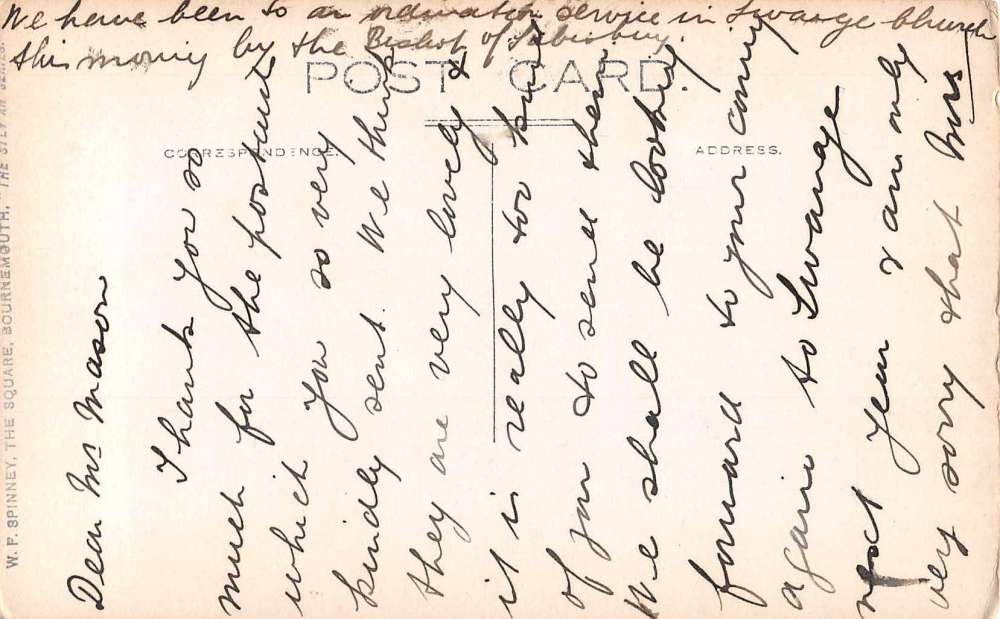 We have been to an ordination service in Swanage Church
this morning by the Bishop of Salisbury.
POST CARD.
CORRESPONDENCE.
ADDRESS.
W. F. SPINNEY, THE SQUARE, BOURNEMOUTH. THE
Dear Mr Mason
Thank you so
much for the postcards
which you so very
kindly sent. We think
they are very lovely &
it is really too kind
of you to send them
We shall be looking
forward to your coming
again to Swanage
next year & am only
very sorry that Mrs